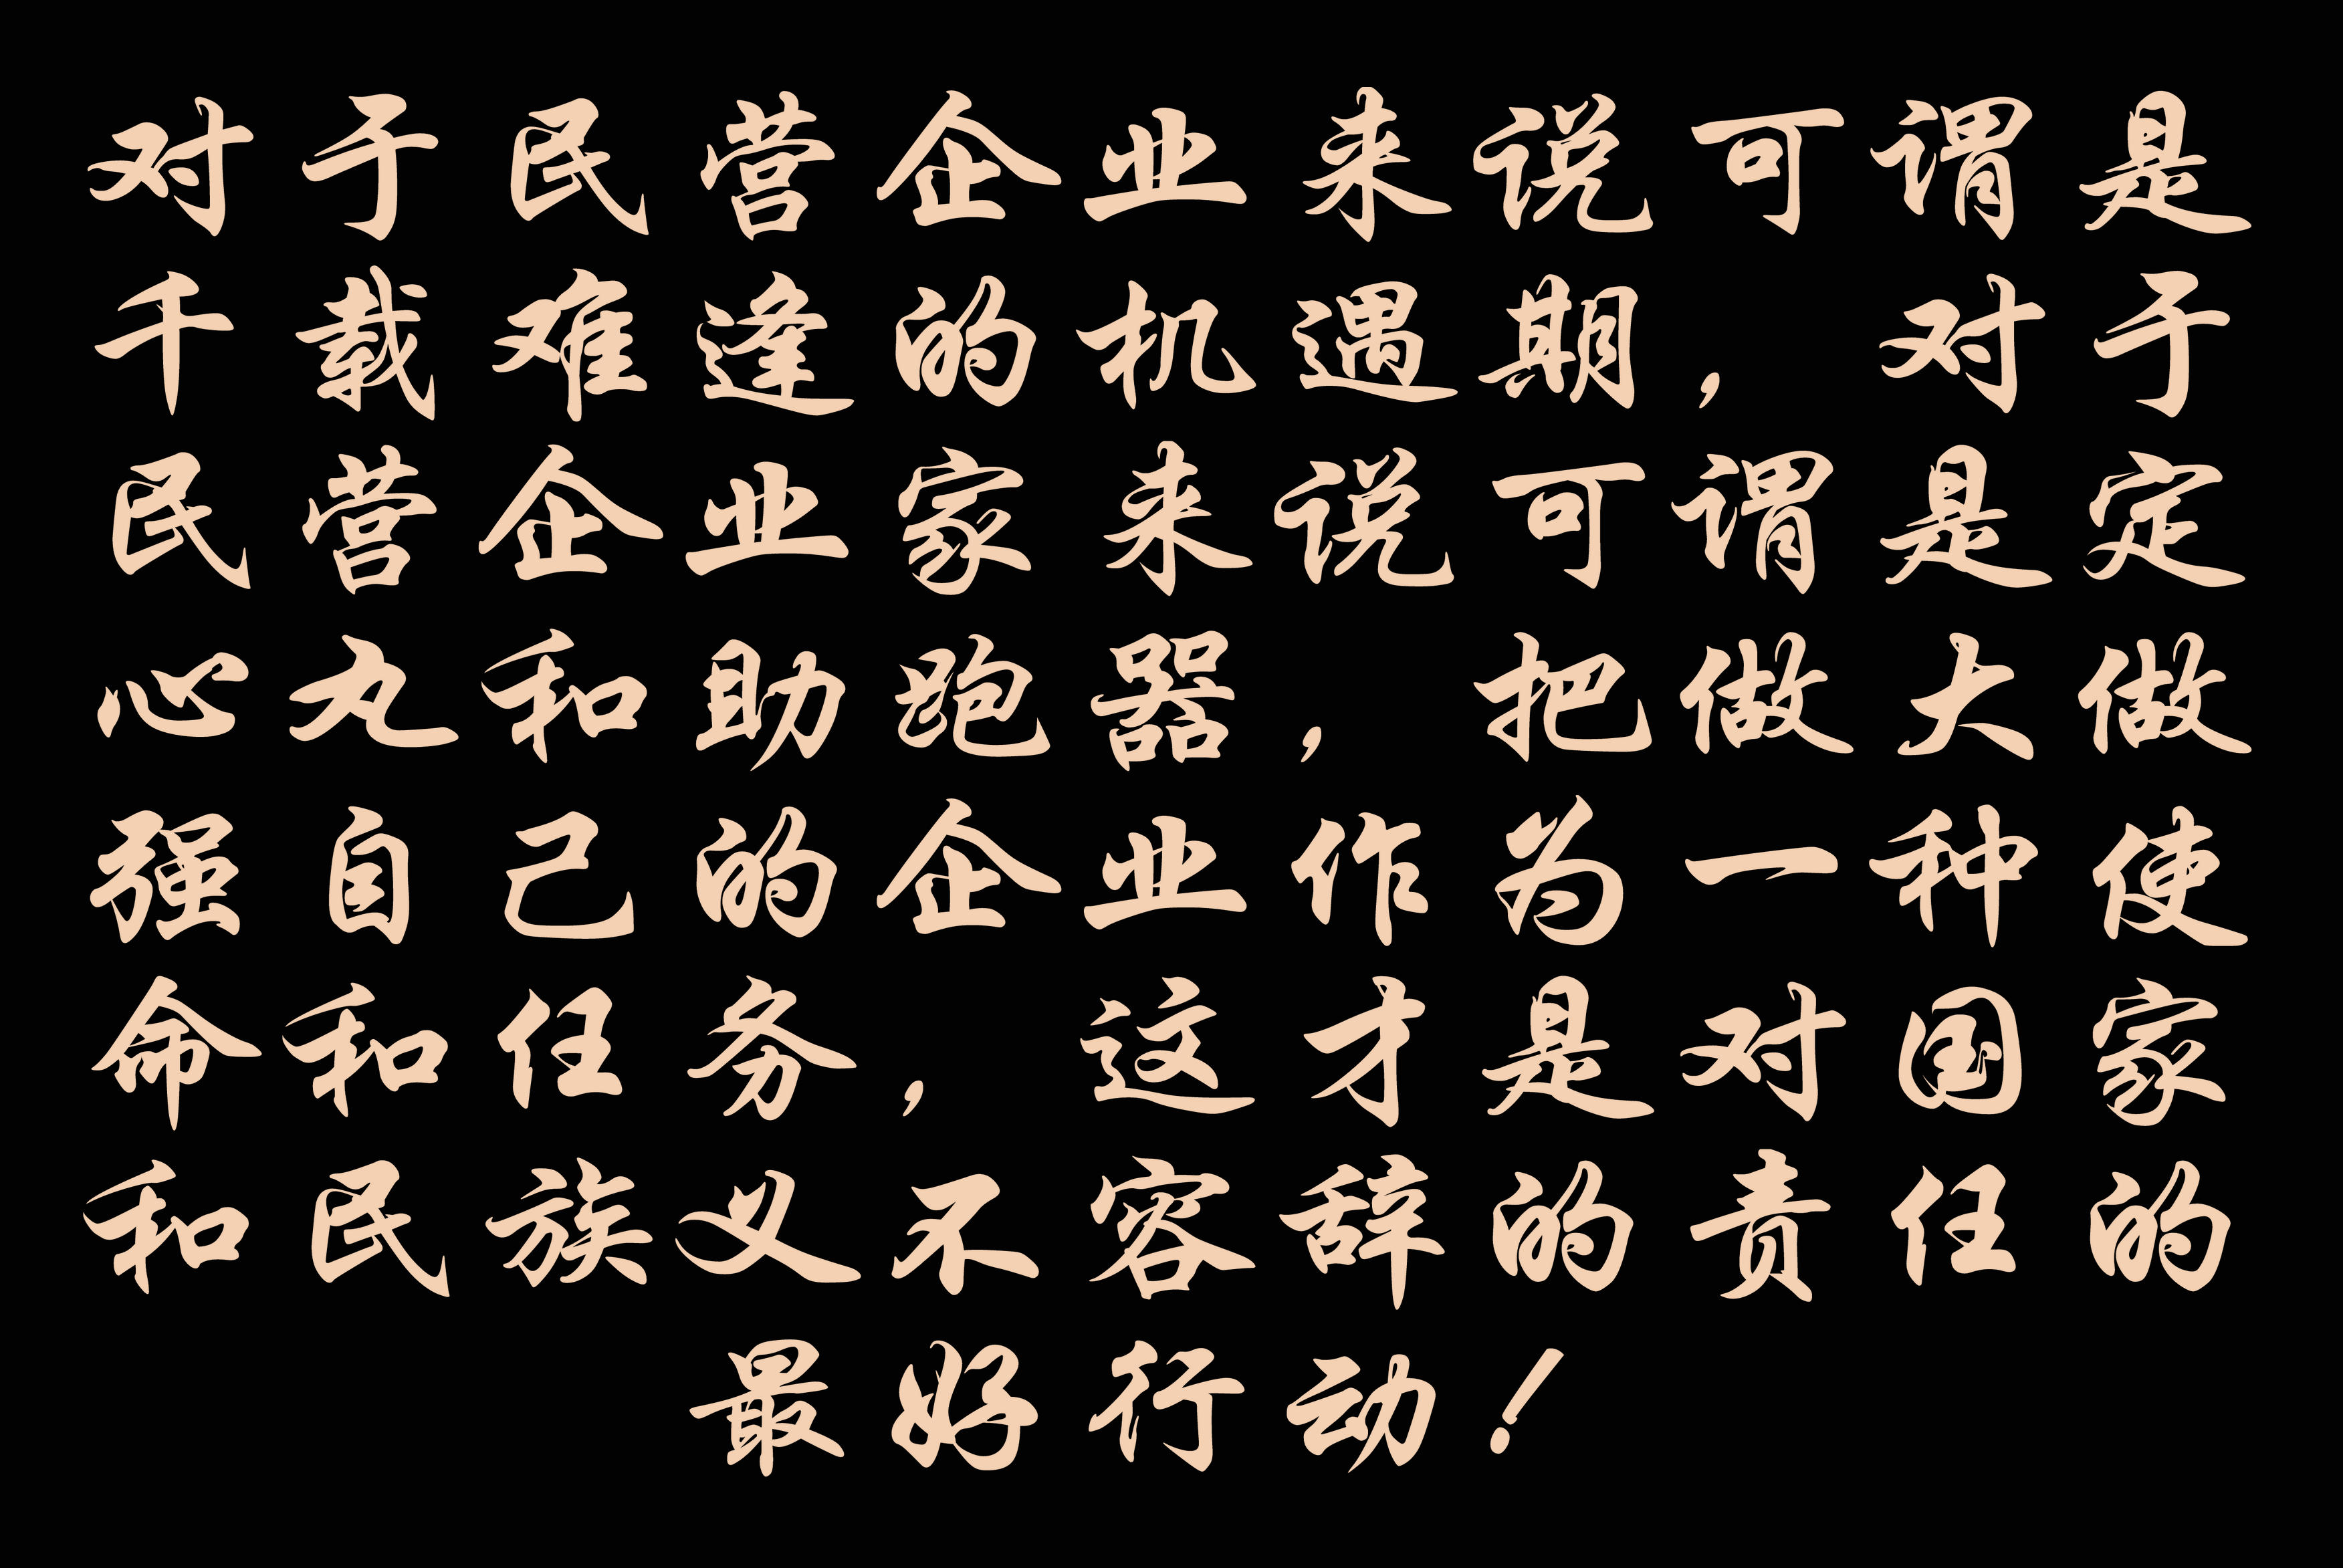 对于民营企业来说可谓是
千载难逢的机遇期，对于
民营企业家来说可谓是定
心丸和助跑器，把做大做
强自己的企业作为一种使
命和任务，这才是对国家
和民族义不容辞的责任的
最好行动！